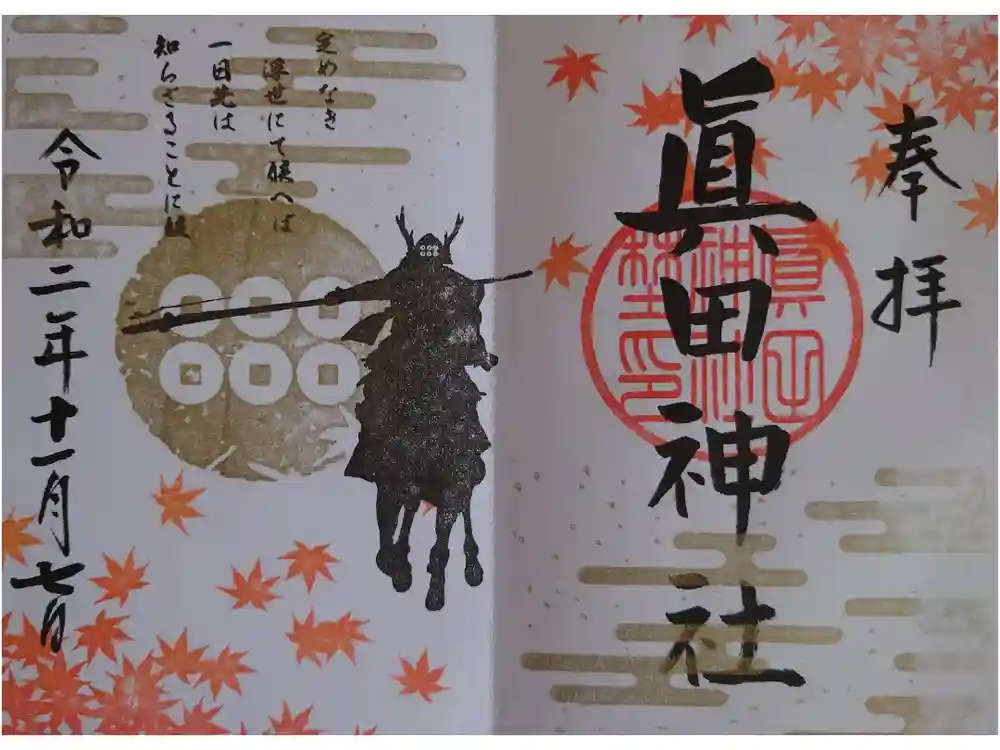 奉拝
眞田神社
眞田
神社
璽印
定めなき
浮世にて候へば
一日先は
知らざることに候
令和二年十一月七日